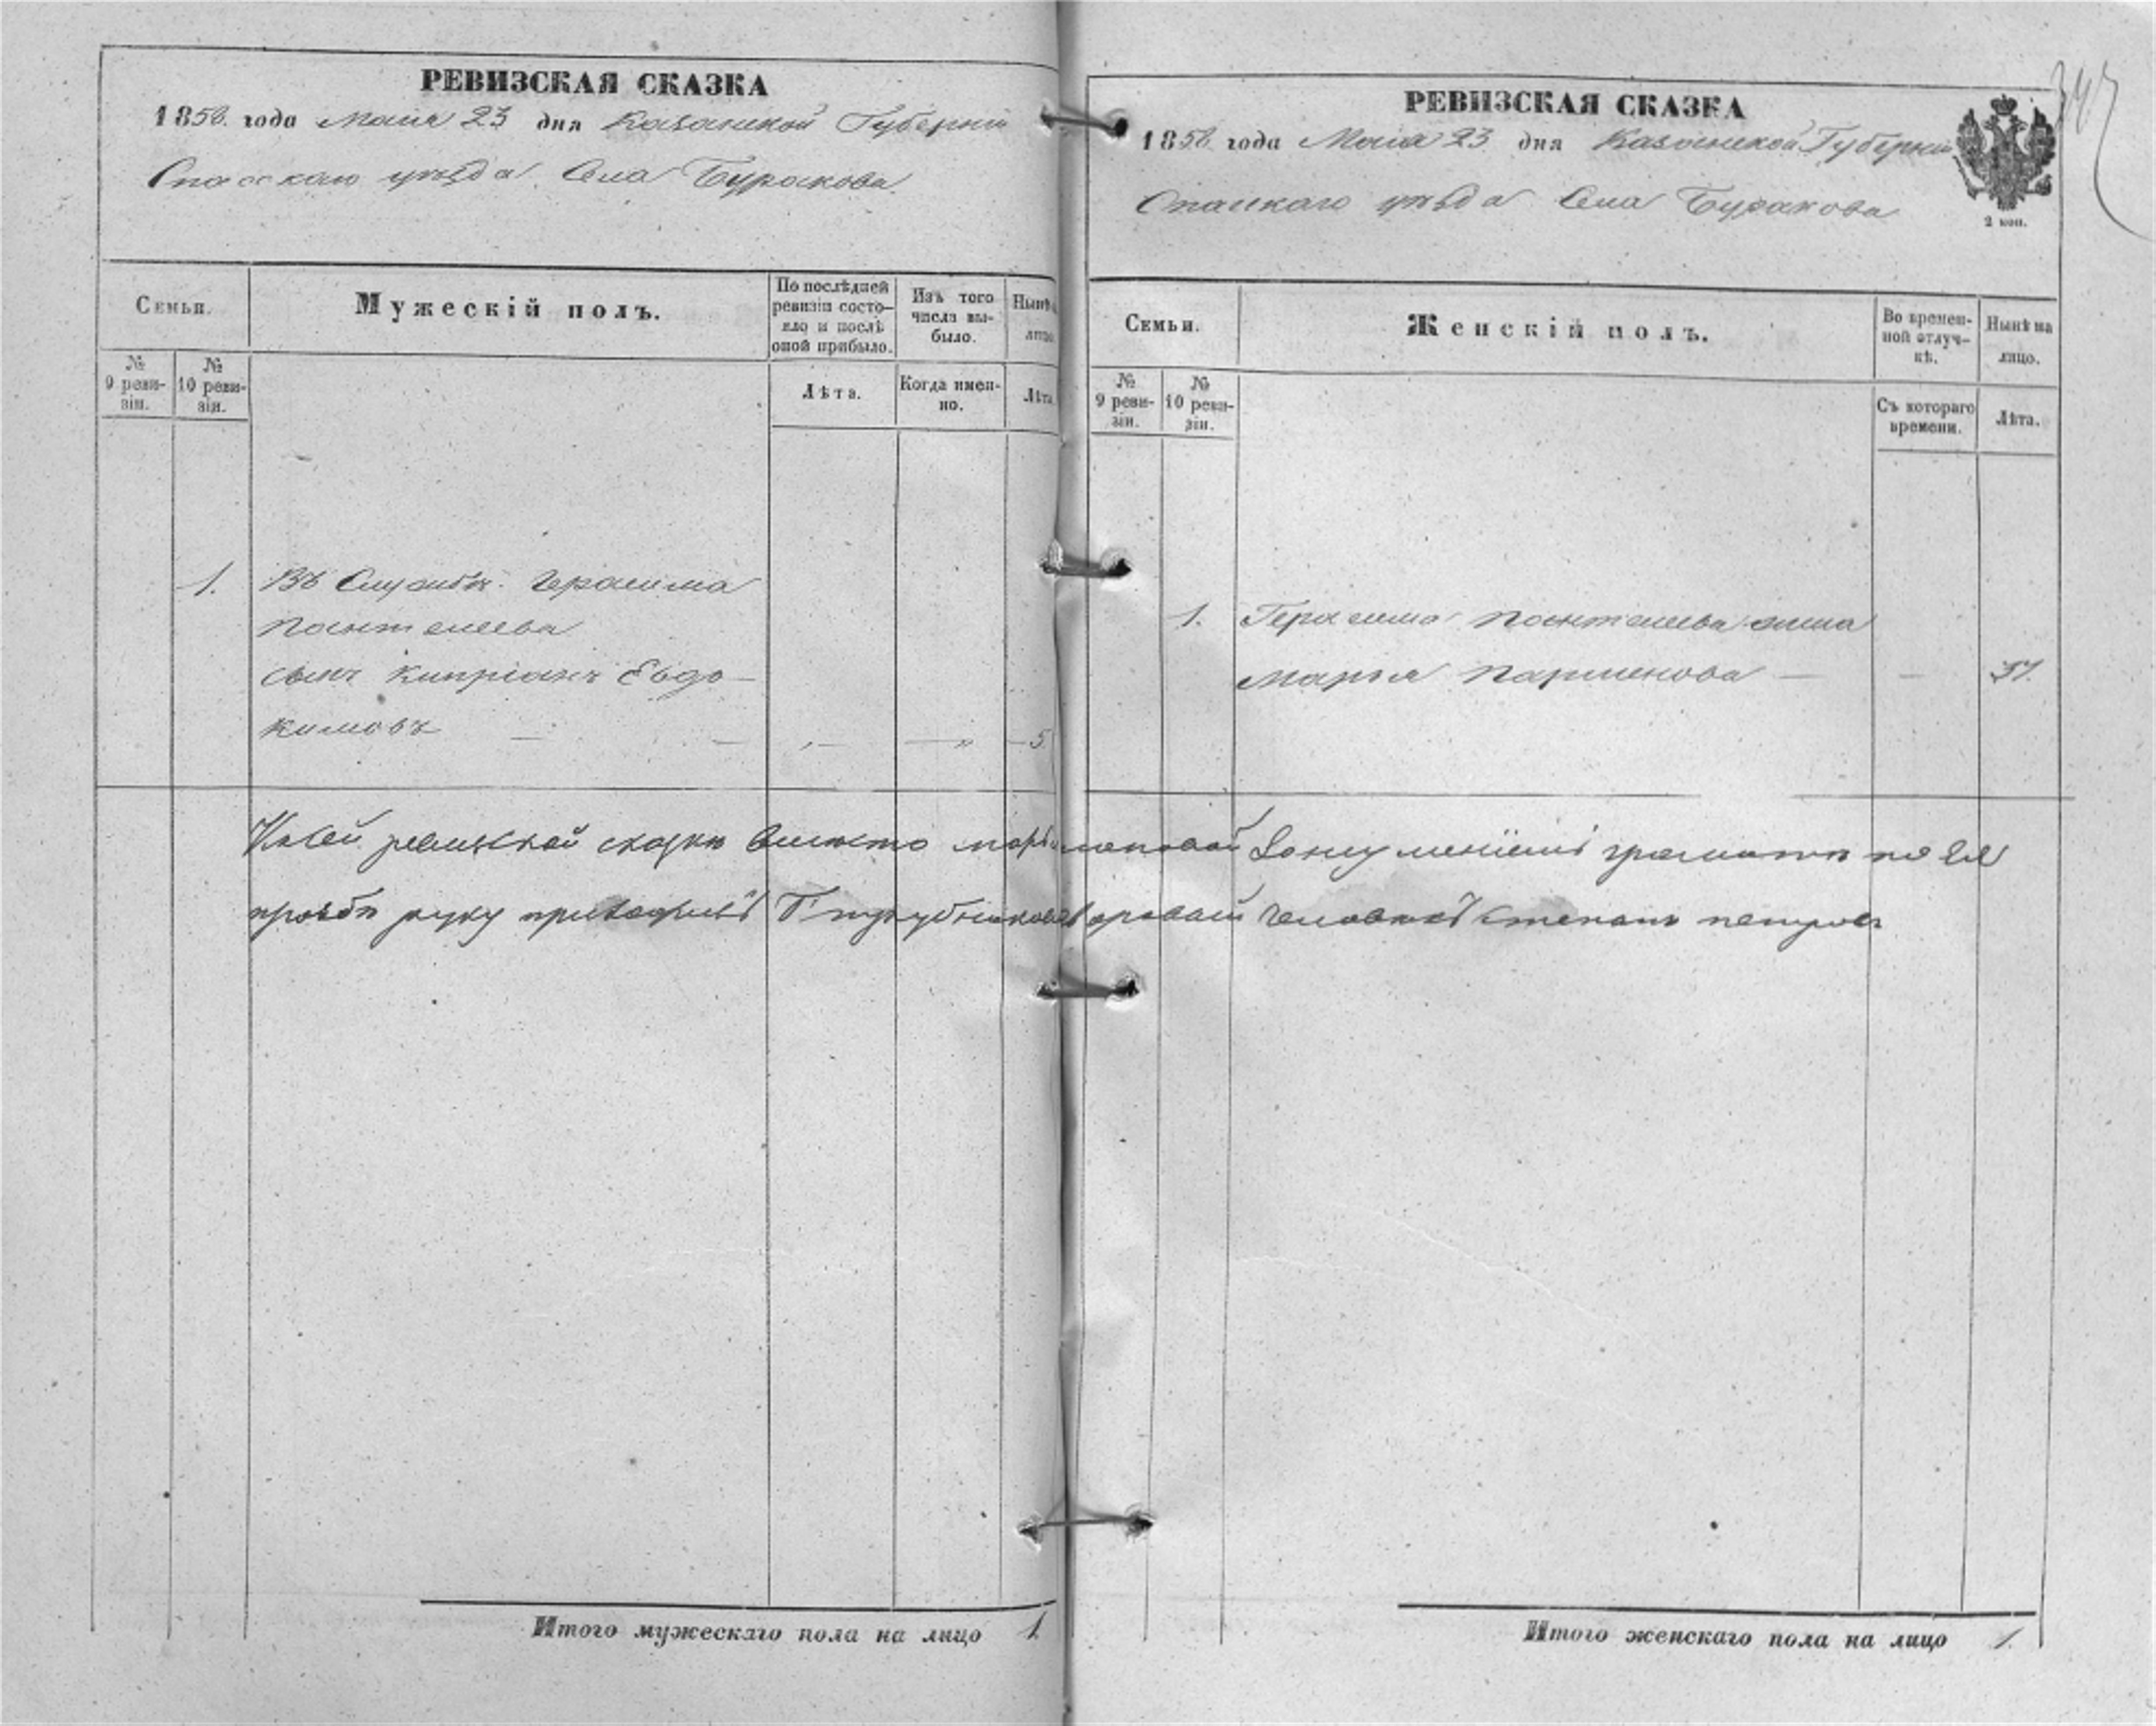 РЕВИЗСКАЯ СКАЗКА
1858. года Маия 23 дня Казанской Губерніи
Спасскаго уѣзда Села Буракова.
Семьи.
Мужескій полъ.
По послѣдней ревизіи состо-
яло и послѣ оной прибыло.
Изъ того числа вы-
было.
Нынѣ
лицо
№ 9 реви-
зіи.
№ 10 реви-
зіи.
Лѣта.
Когда имен-
но.
Лѣта
1. Въ Службѣ Герасима
Пантелеева
сынъ Кипріянъ Евдо-
кимовъ — — „— —„ —5
Итого мужескаго пола на лицо 1
347
РЕВИЗСКАЯ СКАЗКА
1858 года Маия 23 дня Казанской Губерніи
Спаскаго уѣзда Села Буракова
2 коп.
Семьи.
Женскій полъ.
Во времен-
ной отлуч-
кѣ.
Нынѣ на
лицо.
№ 9 реви-
зіи.
№ 10 реви-
зіи.
Съ котораго
времени.
Лѣта.
1. Герасима Пантелеева жена
Марья Парменова — —
Ксей ревиской скаски вместо грамоти по ея
прозбѣ руку приложилъ человекъ степанъ петровъ
Итого женскаго пола на лицо 1.